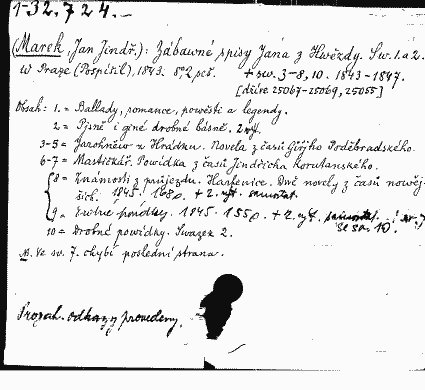 1-32.724.-
(Marek, Jan Jindř.): Zábavné spisy Jana z Hwězdy. Sw. 1. a 2.
w Praze (Pospíšil), 1843. 8°, 2 peš. + sw. 3-8, 10. 1843-1847.
[dříve 25067-25069, 25055]
Obsah: 1. = Ballady, romance, powěsti a legendy.
2 = Pjsně i giné drobné básně. 2 wyd.
3-5 = Jarohněw z Hrádku. Nowela z časů Giřjho Poděbradského.
6-7 = Mastičkář. Powídka z časů Jindřicha Korutanského.
8 = Známosti z průjezdu. Harfenice. Dwě nowely z časů nowěj-
šich. 1845. 168 + 2. wyt. samostat.
9 = powídky. 1845. 155 + 2. wyt. sw. 7
se sw. 10!
10 = Drobné powídky. Swazek 2.
NB. Ve sw. 7. chybí poslední strana.
odkazy provedeny.